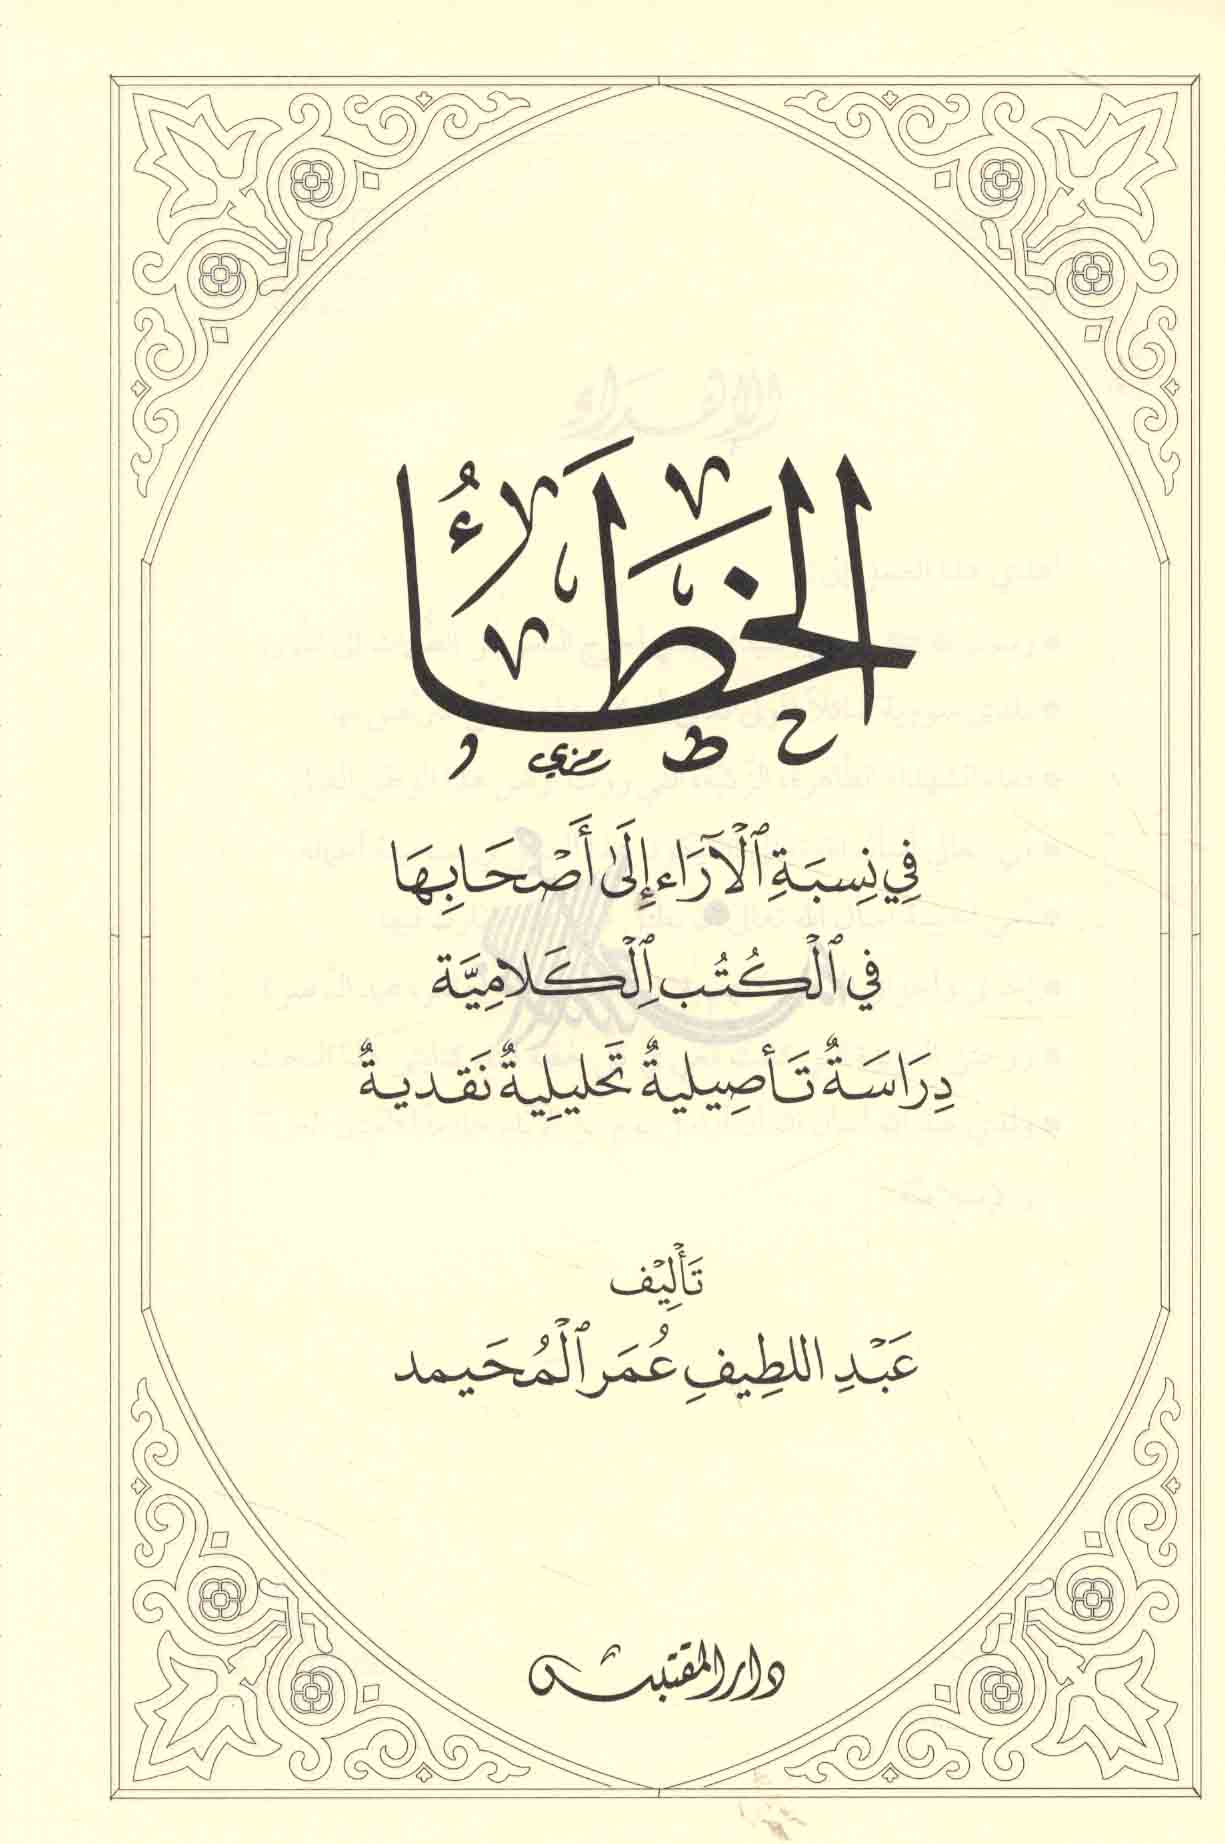 الخَطَأُ
فِي نِسبَةِ ٱلْآرَاءِ إِلَىٰ أَصْحَابِهَا
فِي ٱلْكُتُبِ ٱلْكَلَامِيَّة
دِرَاسَةٌ تَأصِيليةٌ تَحليلِيةٌ نَقديةٌ
تَأْلِيْف
عَبْدِ اللطِيفِ عُمَر ٱلْمُحَيمد
دار المقتبس